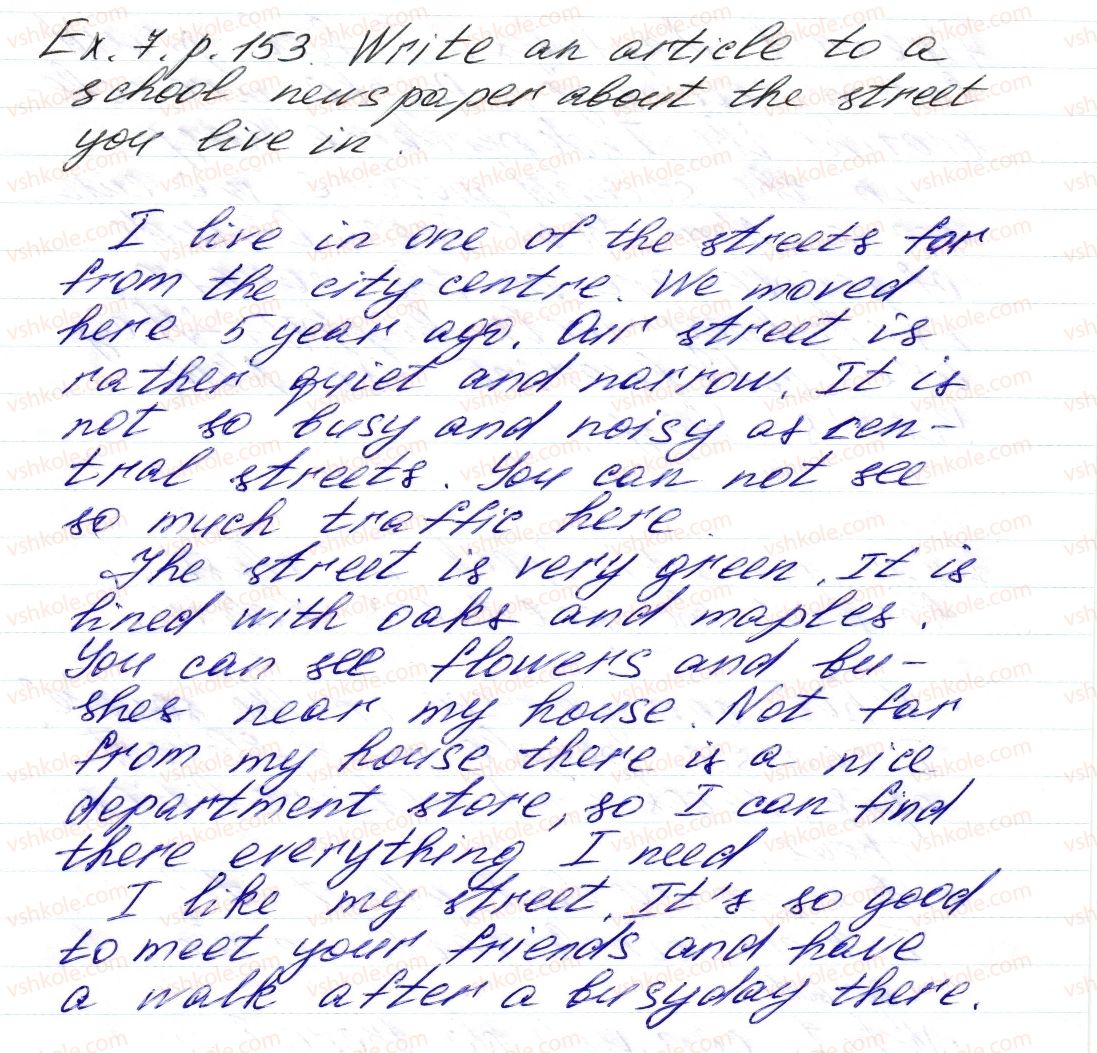 Ex. 7. p. 153. Write an article to a
school newspaper about the street
you live in.
I live in one of the streets far
from the city centre. We moved
here 5 year ago. Our street is
rather quiet and narrow. It is
not so busy and noisy as cen-
tral streets. You can not see
so much traffic here.
The street is very green. It is
lined with oaks and maples.
You can see flowers and bu-
shes near my house. Not far
from my house there is a nice
department store, so I can find
there everything I need
I like my street. It's so good
to meet your friends and have
a walk after a busy day there.